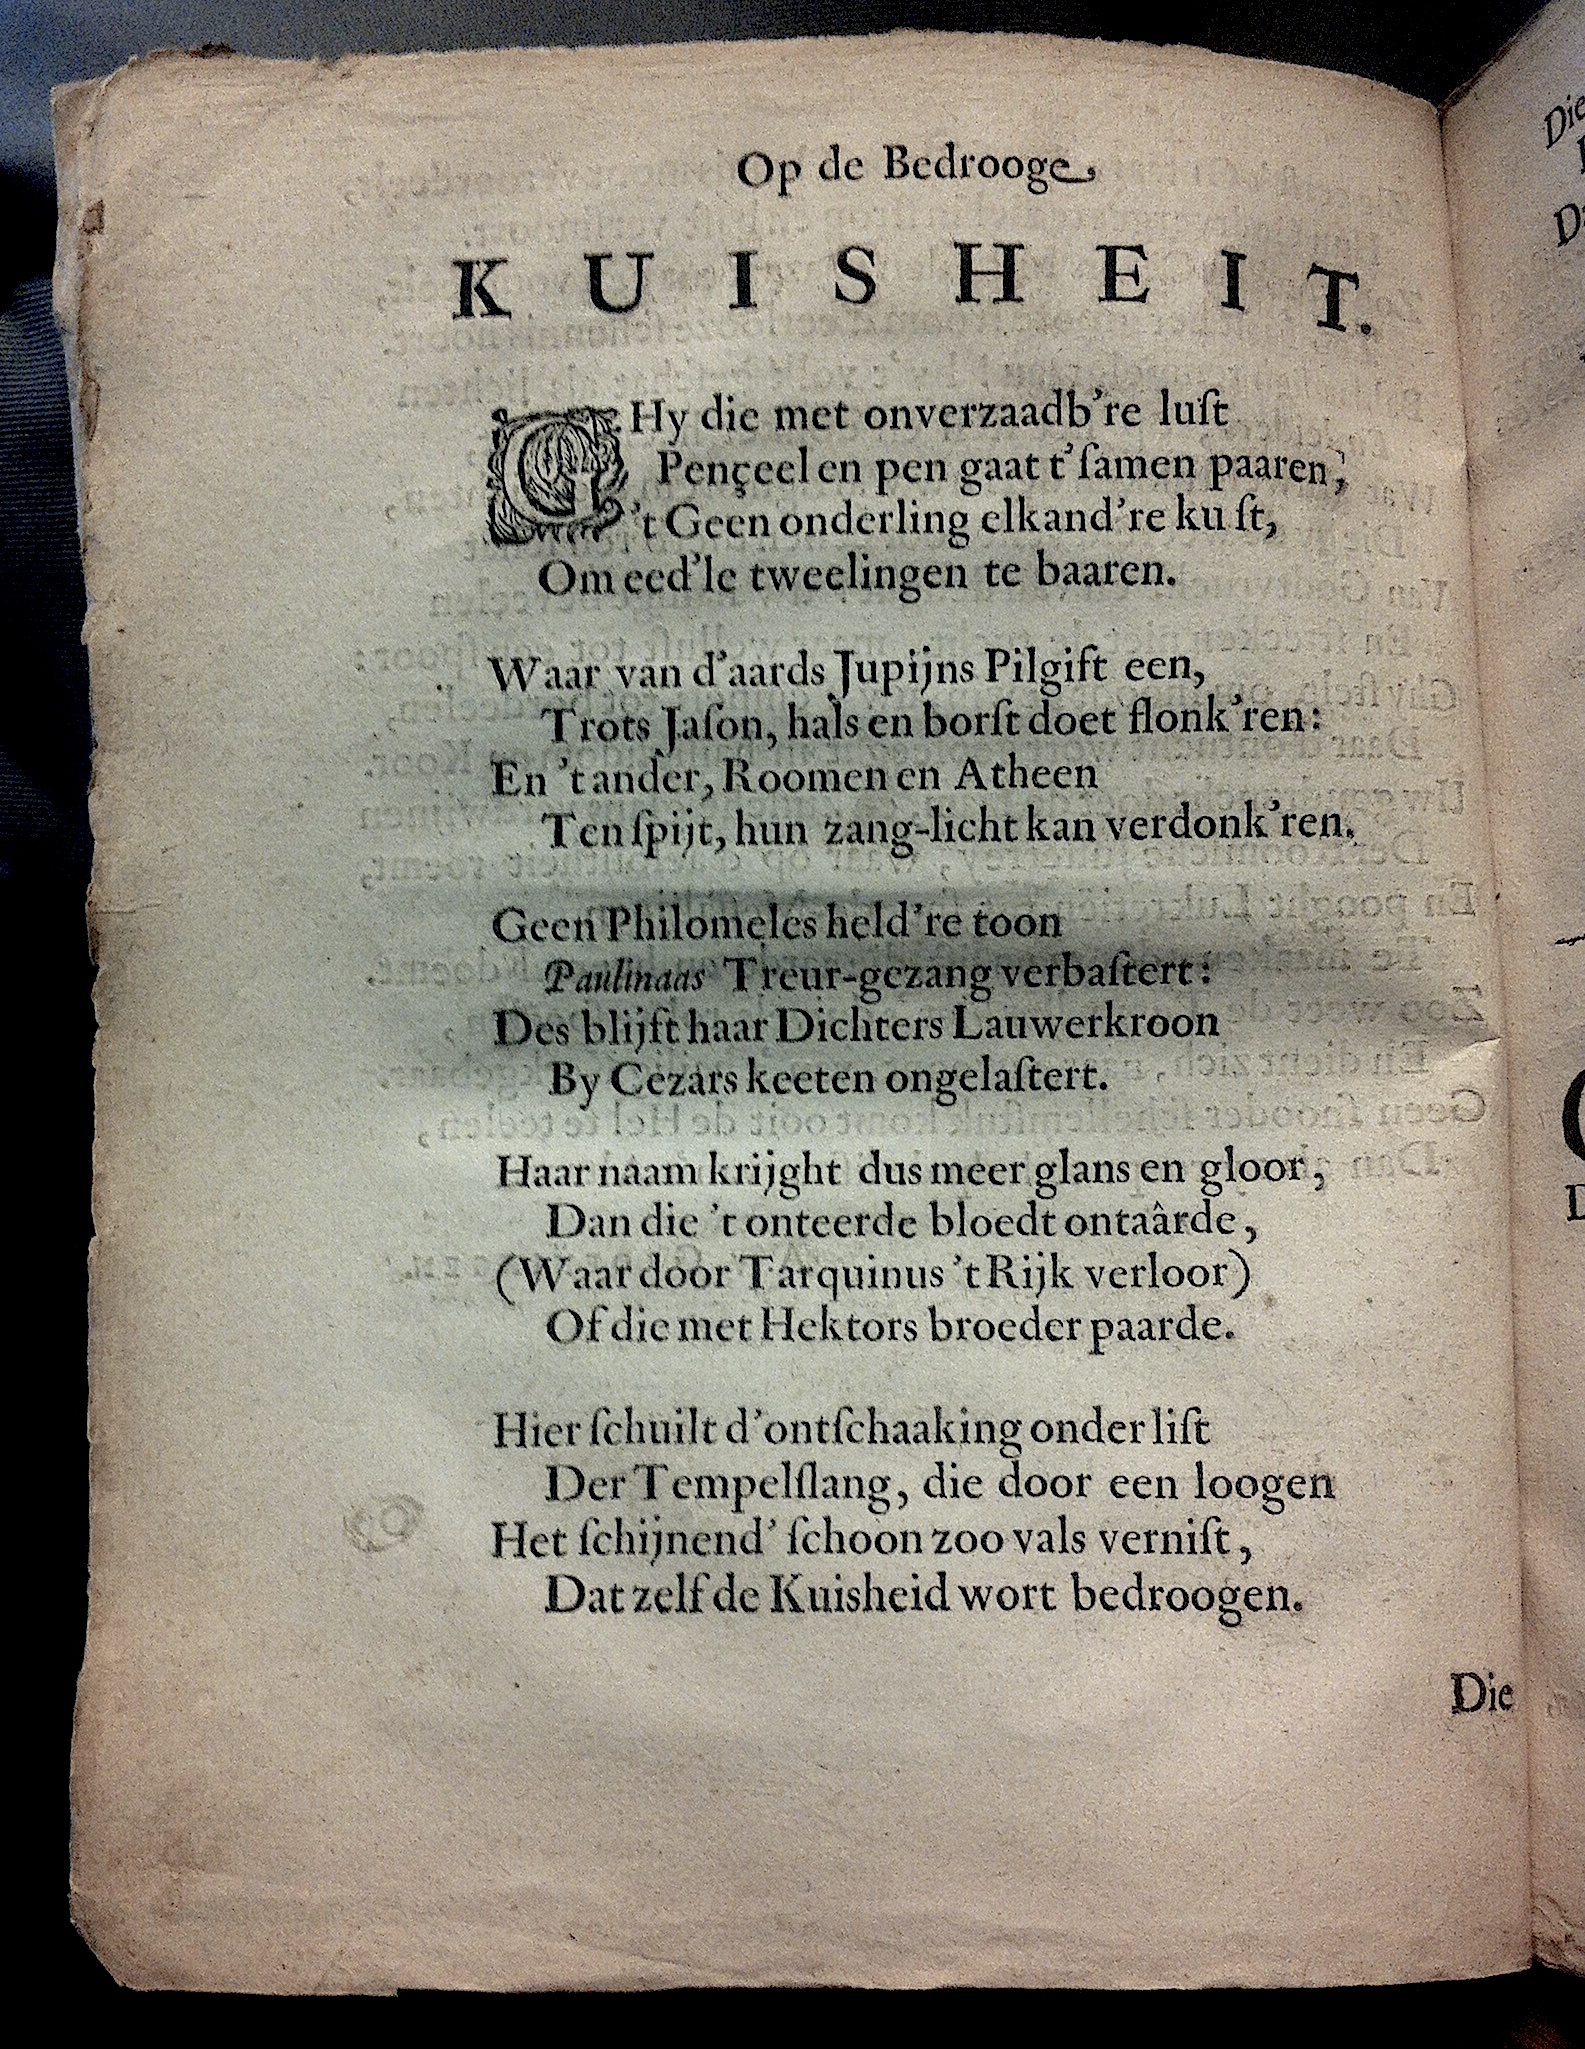 Op de Bedrooge
KUISHEIT.
GHy die met onverzaadb’re luſt
Pençeel en pen gaat t’ſamen paaren,
’t Geen onderling elkand’re kuſt,
Om eed’le tweelingen te baaren.
Waar van d’aards Jupijns Pilgift een,
Trots Jaſon, hals en borſt doet flonk’ren:
En ’t ander, Roomen en Atheen
Ten ſpijt, hun zang-licht kan verdonk’ren.
Geen Philomeles held’re toon
Paulinaas Treur-gezang verbaſtert:
Des blijft haar Dichters Lauwerkroon
By Cezars keeten ongelaſtert.
Haar naam krijght dus meer glans en gloor,
Dan die ’t onteerde bloedt ontaârde,
(Waar door Tarquinus ’t Rijk verloor)
Of die met Hektors broeder paarde.
Hier ſchuilt d’ontſchaaking onder liſt
Der Tempelſlang, die door een loogen
Het ſchijnend’ ſchoon zoo vals verniſt,
Dat zelf de Kuisheid wort bedroogen.
Die